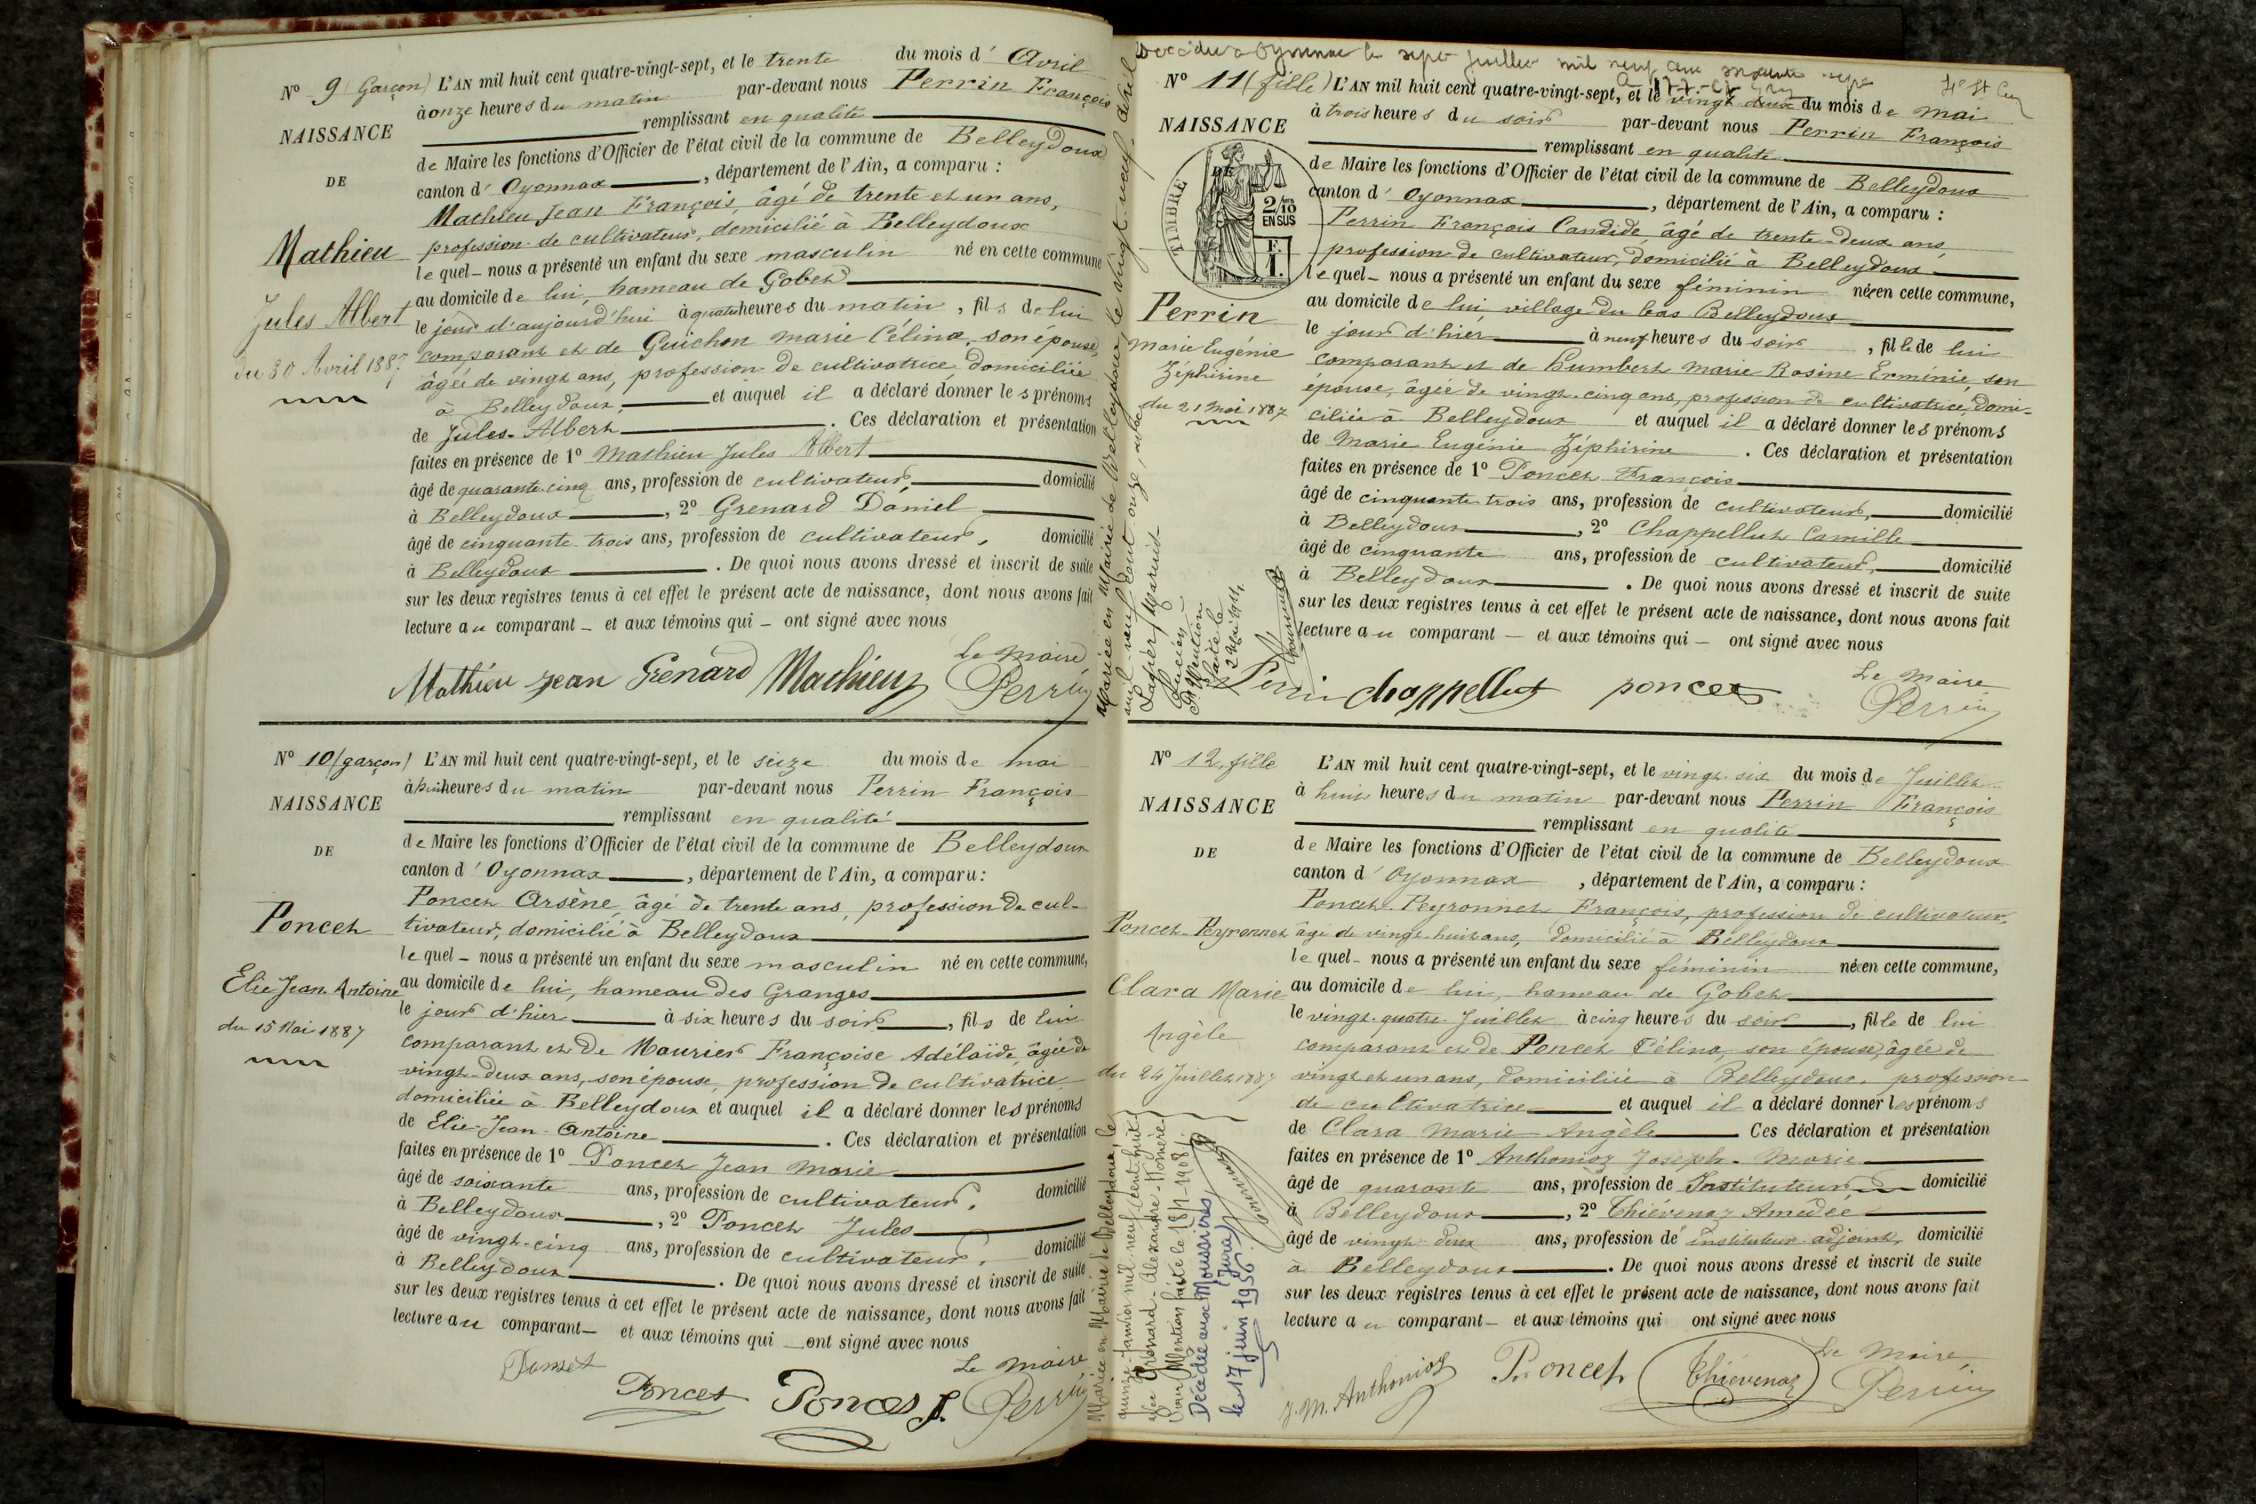 Nº 9 (Garçon) L'AN mil huit cent quatre-vingt-sept, et le trente du mois d' Avril
à onze heures du matin par-devant nous Perrin François
NAISSANCE
remplissant en qualité
de Maire les fonctions d'Officier de l'état civil de la commune de Belleydoux
DE
canton d' Oyonnax, département de l'Ain, a comparu :
Mathieu Jean François, âgé de trente et un ans,
profession de cultivateur, domicilié à Belleydoux
Mathieu
le quel nous a présenté un enfant du sexe masculin né en cette commune
au domicile de lui, hameau de Gobet
Jules Albert
le jour d'aujourd'hui à quatre heures du matin, fils de lui
comparant et de Guichon Marie Célina, son épouse,
du 30 Avril 1887
âgée de vingt ans, profession de cultivatrice domiciliée
à Belleydoux, et auquel il a déclaré donner les prénoms
de Jules-Albert. Ces déclaration et présentation
faites en présence de 1º Mathieu Jules Albert
âgé de quarante-cinq ans, profession de cultivateur, domicilié
à Belleydoux, 2º Grenard Daniel
âgé de cinquante-trois ans, profession de cultivateur, domicilié
à Belleydoux. De quoi nous avons dressé et inscrit de suite
sur les deux registres tenus à cet effet le présent acte de naissance, dont nous avons fait
lecture au comparant – et aux témoins qui – ont signé avec nous
Le Maire
Mathieu Jean Grenard Mathieu Perrin
Nº 10 (garçon) L'AN mil huit cent quatre-vingt-sept, et le seize du mois de mai
à huit heures du matin par-devant nous Perrin François
NAISSANCE
remplissant en qualité
de Maire les fonctions d'Officier de l'état civil de la commune de Belleydoux
DE
canton d' Oyonnax, département de l'Ain, a comparu :
Poncet Arsène, âgé de trente ans, profession de cul-
Poncet
tivateur, domicilié à Belleydoux
le quel – nous a présenté un enfant du sexe masculin né en cette commune,
Elie Jean Antoine
au domicile de lui, hameau des Granges
le jour d'hier à six heures du soir, fils de lui
du 15 Mai 1887
comparant et de Mourier Françoise Adélaïde, âgée de
vingt-deux ans, son épouse, profession de cultivatrice
domiciliée à Belleydoux et auquel il a déclaré donner les prénoms
de Elie-Jean-Antoine. Ces déclaration et présentation
faites en présence de 1º Poncet Jean Marie
âgé de soixante ans, profession de cultivateur, domicilié
à Belleydoux, 2º Poncet Jules
âgé de vingt-cinq ans, profession de cultivateur, domicilié
à Belleydoux. De quoi nous avons dressé et inscrit de suite
sur les deux registres tenus à cet effet le présent acte de naissance, dont nous avons fait
lecture au comparant – et aux témoins qui – ont signé avec nous
Le Maire
Poncet Poncet J. Perrin
Décédée à Oyonnax le sept juillet mil neuf cent soixante sept
Nº 11 (fille) L'AN mil huit cent quatre-vingt-sept, et le vingt deux du mois de mai
à trois heures du soir par-devant nous Perrin François
NAISSANCE
remplissant en qualité
DE
de Maire les fonctions d'Officier de l'état civil de la commune de Belleydoux
canton d' Oyonnax, département de l'Ain, a comparu :
TIMBRE
2/10
EN SUS
F.
1.
Perrin François Candide, âgé de trente-deux ans,
profession de cultivateur, domicilié à Belleydoux
le quel – nous a présenté un enfant du sexe féminin née en cette commune,
Perrin
au domicile de lui village du bas Belleydoux
Marie Eugénie
Zéphirine
le jour d'hier à neuf heures du soir, fille de lui
comparant et de Humbert Marie Rosine Erminie, son
épouse, âgée de vingt-cinq ans, profession de cultivatrice, domi-
du 21 mai 1887
ciliée à Belleydoux et auquel il a déclaré donner les prénoms
de Marie Eugénie Zéphirine. Ces déclaration et présentation
faites en présence de 1º Poncet François
âgé de cinquante trois ans, profession de cultivateur, domicilié
à Belleydoux, 2º Chappellut Camille
âgé de cinquante ans, profession de cultivateur, domicilié
à Belleydoux. De quoi nous avons dressé et inscrit de suite
sur les deux registres tenus à cet effet le présent acte de naissance, dont nous avons fait
lecture au comparant – et aux témoins qui – ont signé avec nous
Le Maire
Perrin Chappellut Poncet Perrin
Mariée en Mairie de Belleydoux le vingt-neuf avril
mil-neuf-cent-onze, avec
Mention
faite le
2 Mai 1911.
Nº 12, fille L'AN mil huit cent quatre-vingt-sept, et le vingt-six du mois de Juillet
à huit heures du matin par-devant nous Perrin François
NAISSANCE
remplissant en qualité
DE
de Maire les fonctions d'Officier de l'état civil de la commune de Belleydoux
canton d' Oyonnax, département de l'Ain, a comparu :
Poncet-Peyronnet François, profession de cultivateur,
Poncet-Peyronnet
âgé de vingt-huit ans, domicilié à Belleydoux
le quel – nous a présenté un enfant du sexe féminin née en cette commune,
Clara Marie
Angèle
au domicile de lui, hameau de Gobet
le vingt-quatre Juillet à cinq heures du soir, fille de lui
comparant et de Poncet Célina, son épouse, âgée de
du 24 Juillet 1887
vingt et un ans, domiciliée à Belleydoux, profession
de cultivatrice et auquel il a déclaré donner les prénoms
de Clara Marie Angèle Ces déclaration et présentation
faites en présence de 1º Anthonioz Joseph-Marie
âgé de quarante ans, profession de Instituteur domicilié
à Belleydoux, 2º Thiévenaz Amédée
âgé de vingt-deux ans, profession de instituteur adjoint, domicilié
à Belleydoux. De quoi nous avons dressé et inscrit de suite
sur les deux registres tenus à cet effet le présent acte de naissance, dont nous avons fait
lecture au comparant – et aux témoins qui ont signé avec nous
Le Maire,
J. M. Anthonioz Poncet Thiévenaz Perrin
Mariée en Mairie de Belleydoux, le
quinze janvier mil neuf cent huit
avec Grenard-Alexandre-Honoré
Mention faite le 18/1-1908.
Décédée aux Moussières
(Jura)
le 17 juin 1956.